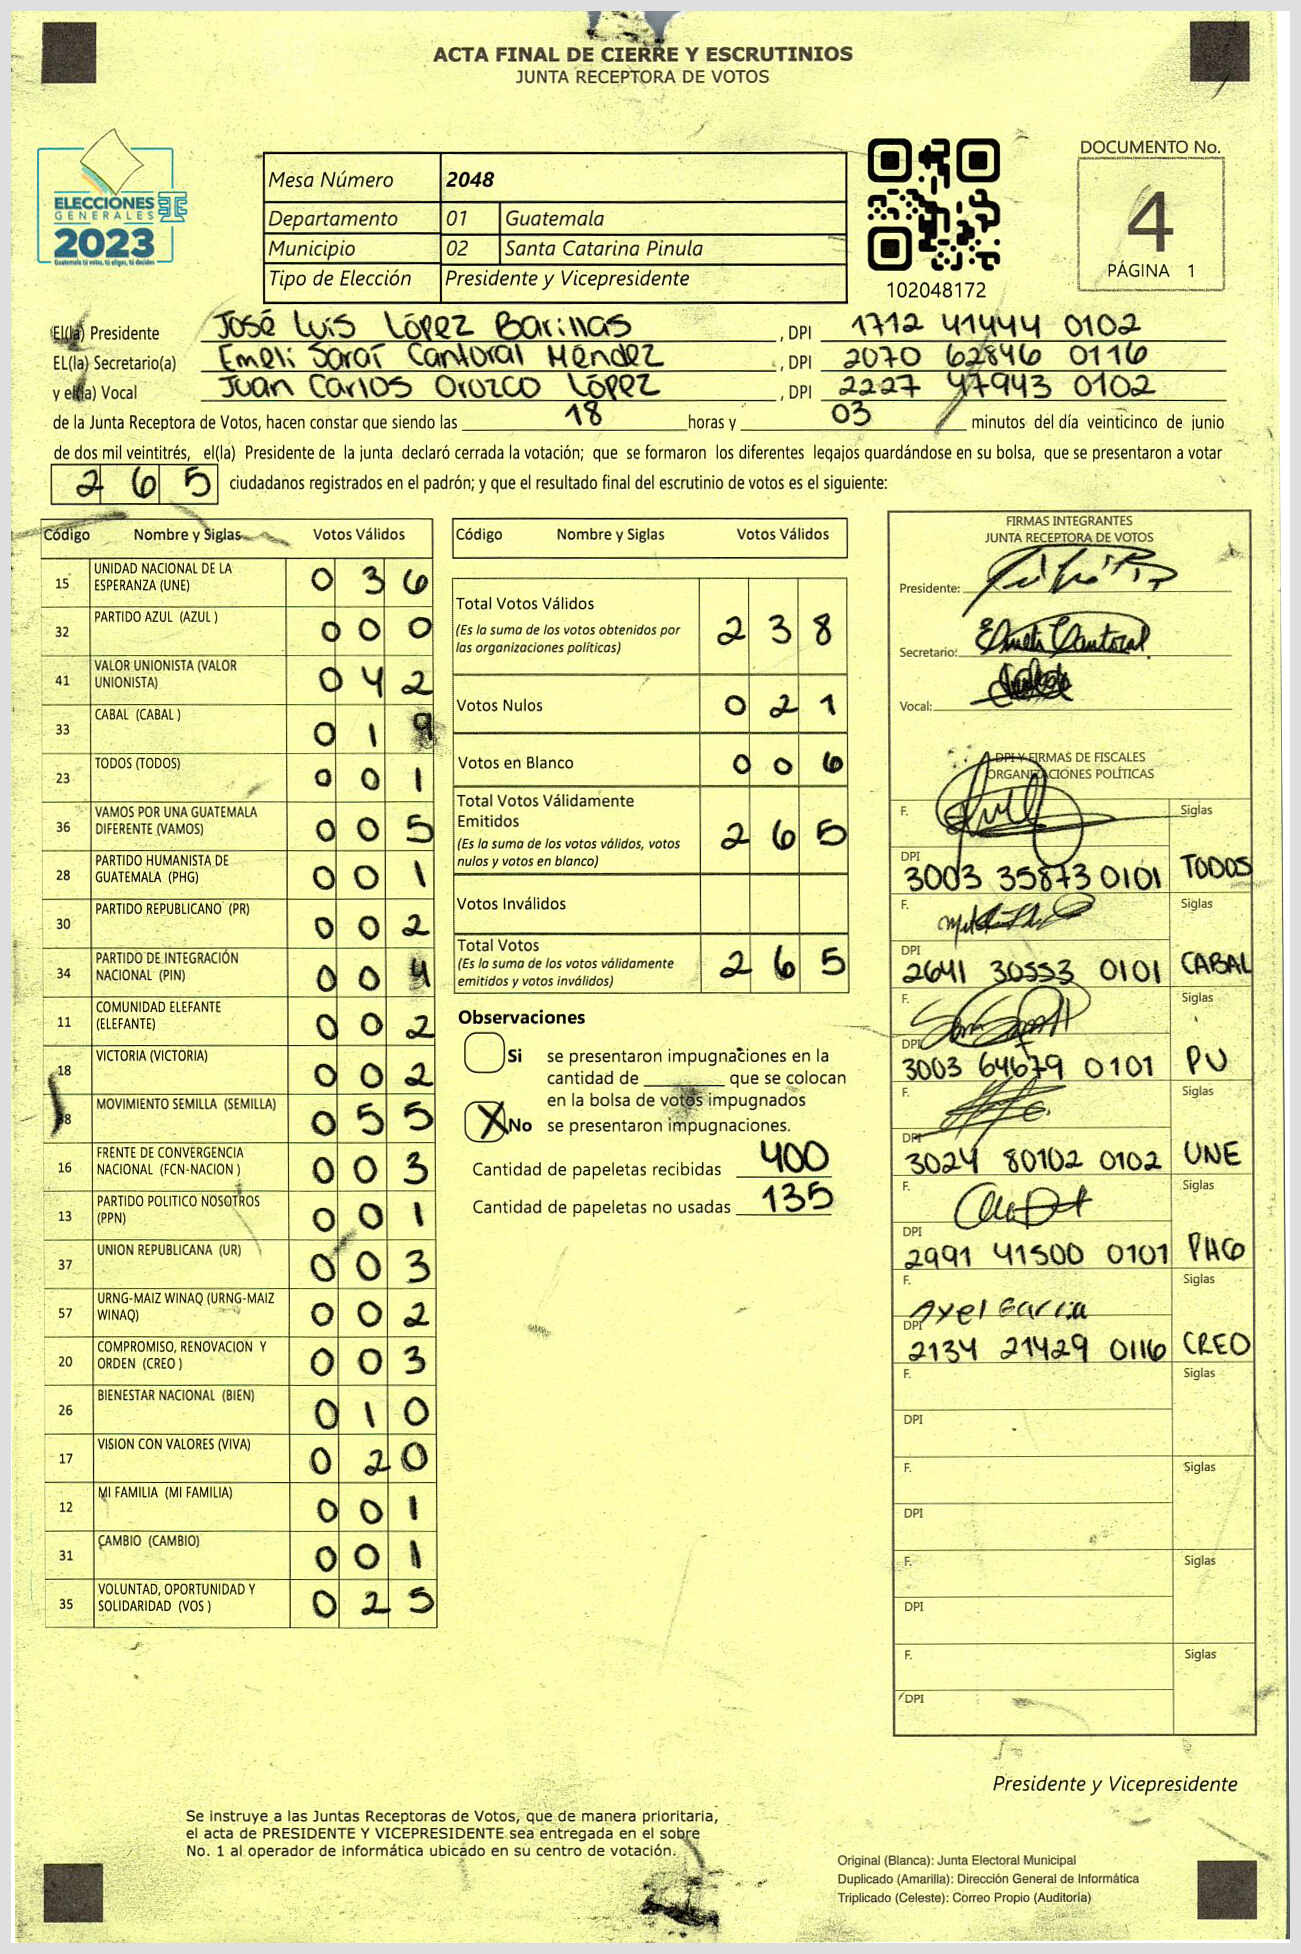 ACTA FINAL DE CIERRE Y ESCRUTINIOS
JUNTA RECEPTORA DE VOTOS
ELECCIONES
GENERALES
2023
Guatemala tú votas, tú eliges, tú decides
Mesa Número 2048
Departamento 01 Guatemala
Municipio 02 Santa Catarina Pinula
Tipo de Elección Presidente y Vicepresidente
102048172
DOCUMENTO No.
4
PÁGINA 1
El(la) Presidente José Luis López Barillas , DPI 1712 41444 0102
EL(la) Secretario(a) Emeli Saraí Cantoral Méndez , DPI 2070 62846 0116
y el(la) Vocal Juan Carlos Orozco López , DPI 2227 47943 0102
de la Junta Receptora de Votos, hacen constar que siendo las 18 horas y 03 minutos del día veinticinco de junio
de dos mil veintitrés, el(la) Presidente de la junta declaró cerrada la votación; que se formaron los diferentes legajos guardándose en su bolsa, que se presentaron a votar
265 ciudadanos registrados en el padrón; y que el resultado final del escrutinio de votos es el siguiente:
Código Nombre y Siglas Votos Válidos
15 UNIDAD NACIONAL DE LA
ESPERANZA (UNE) 0 3 6
32 PARTIDO AZUL (AZUL ) 0 0 0
41 VALOR UNIONISTA (VALOR
UNIONISTA) 0 4 2
33 CABAL (CABAL ) 0 1 9
23 TODOS (TODOS) 0 0 1
36 VAMOS POR UNA GUATEMALA
DIFERENTE (VAMOS) 0 0 5
28 PARTIDO HUMANISTA DE
GUATEMALA (PHG) 0 0 1
30 PARTIDO REPUBLICANO (PR) 0 0 2
34 PARTIDO DE INTEGRACIÓN
NACIONAL (PIN) 0 0 4
11 COMUNIDAD ELEFANTE
(ELEFANTE) 0 0 2
18 VICTORIA (VICTORIA) 0 0 2
MOVIMIENTO SEMILLA (SEMILLA) 0 5 5
16 FRENTE DE CONVERGENCIA
NACIONAL (FCN-NACION ) 0 0 3
13 PARTIDO POLITICO NOSOTROS
(PPN) 0 0 1
37 UNION REPUBLICANA (UR) 0 0 3
57 URNG-MAIZ WINAQ (URNG-MAIZ
WINAQ) 0 0 2
20 COMPROMISO, RENOVACION Y
ORDEN (CREO ) 0 0 3
26 BIENESTAR NACIONAL (BIEN) 0 1 0
17 VISION CON VALORES (VIVA) 0 2 0
12 MI FAMILIA (MI FAMILIA) 0 0 1
31 CAMBIO (CAMBIO) 0 0 1
35 VOLUNTAD, OPORTUNIDAD Y
SOLIDARIDAD (VOS ) 0 2 5
Código Nombre y Siglas Votos Válidos
Total Votos Válidos 2 3 8
(Es la suma de los votos obtenidos por
las organizaciones políticas)
Votos Nulos 0 2 1
Votos en Blanco 0 0 6
Total Votos Válidamente
Emitidos 2 6 5
(Es la suma de los votos válidos, votos
nulos y votos en blanco)
Votos Inválidos
Total Votos 2 6 5
(Es la suma de los votos válidamente
emitidos y votos inválidos)
Observaciones
Si se presentaron impugnaciones en la
cantidad de ________ que se colocan
en la bolsa de votos impugnados
X No se presentaron impugnaciones.
Cantidad de papeletas recibidas 400
Cantidad de papeletas no usadas 135
FIRMAS INTEGRANTES
JUNTA RECEPTORA DE VOTOS
Presidente:
Secretario: Cantoral
Vocal:
DPI Y FIRMAS DE FISCALES
ORGANIZACIONES POLÍTICAS
F. Siglas
DPI 3003 35873 0101 TODOS
F. Siglas
DPI 2641 30553 0101 CABAL
F. Siglas
DPI 3003 64679 0101 PU
F. Siglas
DPI 3024 80102 0102 UNE
F. Siglas
DPI 2991 41500 0101 PHG
F. Axel Garcia Siglas
DPI 2134 21429 0116 CREO
F. Siglas
DPI
F. Siglas
DPI
F. Siglas
DPI
F. Siglas
DPI
Presidente y Vicepresidente
Se instruye a las Juntas Receptoras de Votos, que de manera prioritaria,
el acta de PRESIDENTE Y VICEPRESIDENTE sea entregada en el sobre
No. 1 al operador de informática ubicado en su centro de votación.
Original (Blanca): Junta Electoral Municipal
Duplicado (Amarilla): Dirección General de Informática
Triplicado (Celeste): Correo Propio (Auditoría)